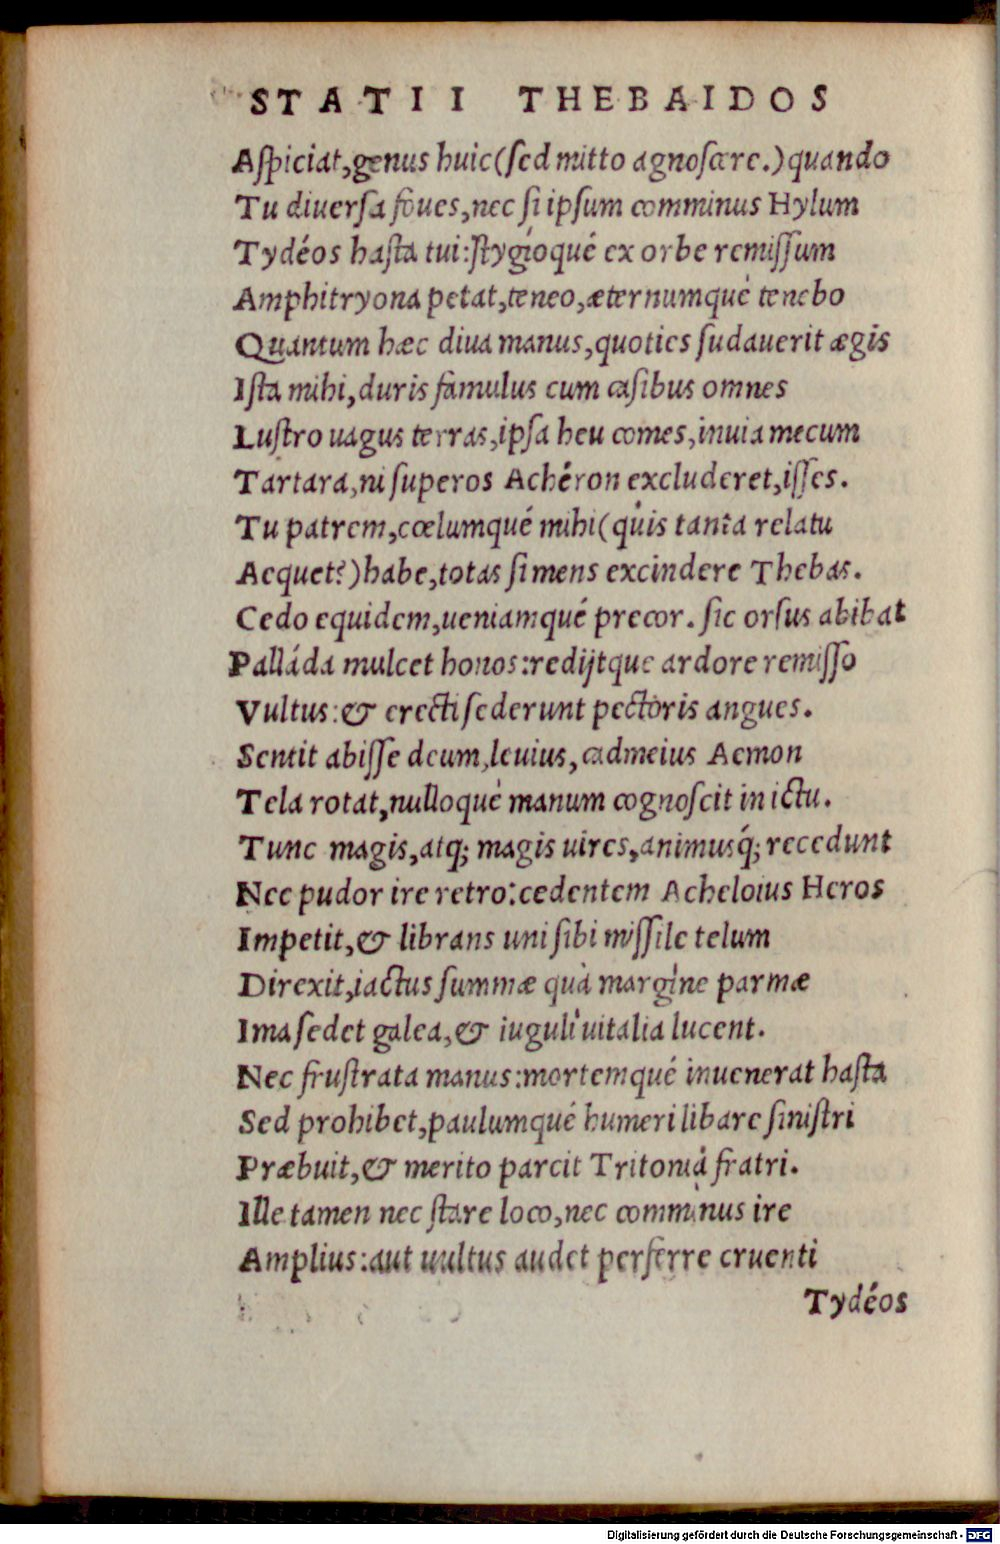 STATII THEBAIDOS
Aspiciat, genus huic (sed mitto agnoscere.) quando
Tu diuersa foues, nec si ipsum comminus Hylum
Tydéos hasta tui: stygióqué ex orbe remissum
Amphitryona petat, teneo, æternumquè tenebo
Quantum hæc diua manus, quoties sudauerit ægis
Ista mihi, duris famulus cum casibus omnes
Lustro uagus terras, ipsa heu comes, inuia mecum
Tartara, ni superos Achéron excluderet, isses.
Tu patrem, cœlumqué mihi (quis tanta relatu
Aequet?) habe, totas si mens excindere Thebas.
Cedo equidem, ueniamqué precor. sic orsus abibat
Palláda mulcet honos: redijtque ardore remisso
Vultus: & erecti sederunt pectoris angues.
Sentit abisse deum, leuius, cadmeius Aemon
Tela rotat, nulloquè manum cognoscit in ictu.
Tunc magis, atq; magis uires, animusq́; recedunt
Nec pudor ire retro: cedentem Acheloius Heros
Impetit, & librans uni sibi missile telum
Direxit, iactus summæ quà margine parmæ
Ima sedet galea, & iuguli uitalia lucent.
Nec frustrata manus: mortemqué inuenerat hasta
Sed prohibet, paulumqué humeri libare sinistri
Præbuit, & merito parcit Tritonia fratri.
Ille tamen nec stare loco, nec comminus ire
Amplius: aut uultus audet perferre cruenti
Tydéos
Digitalisierung gefördert durch die Deutsche Forschungsgemeinschaft - DFG